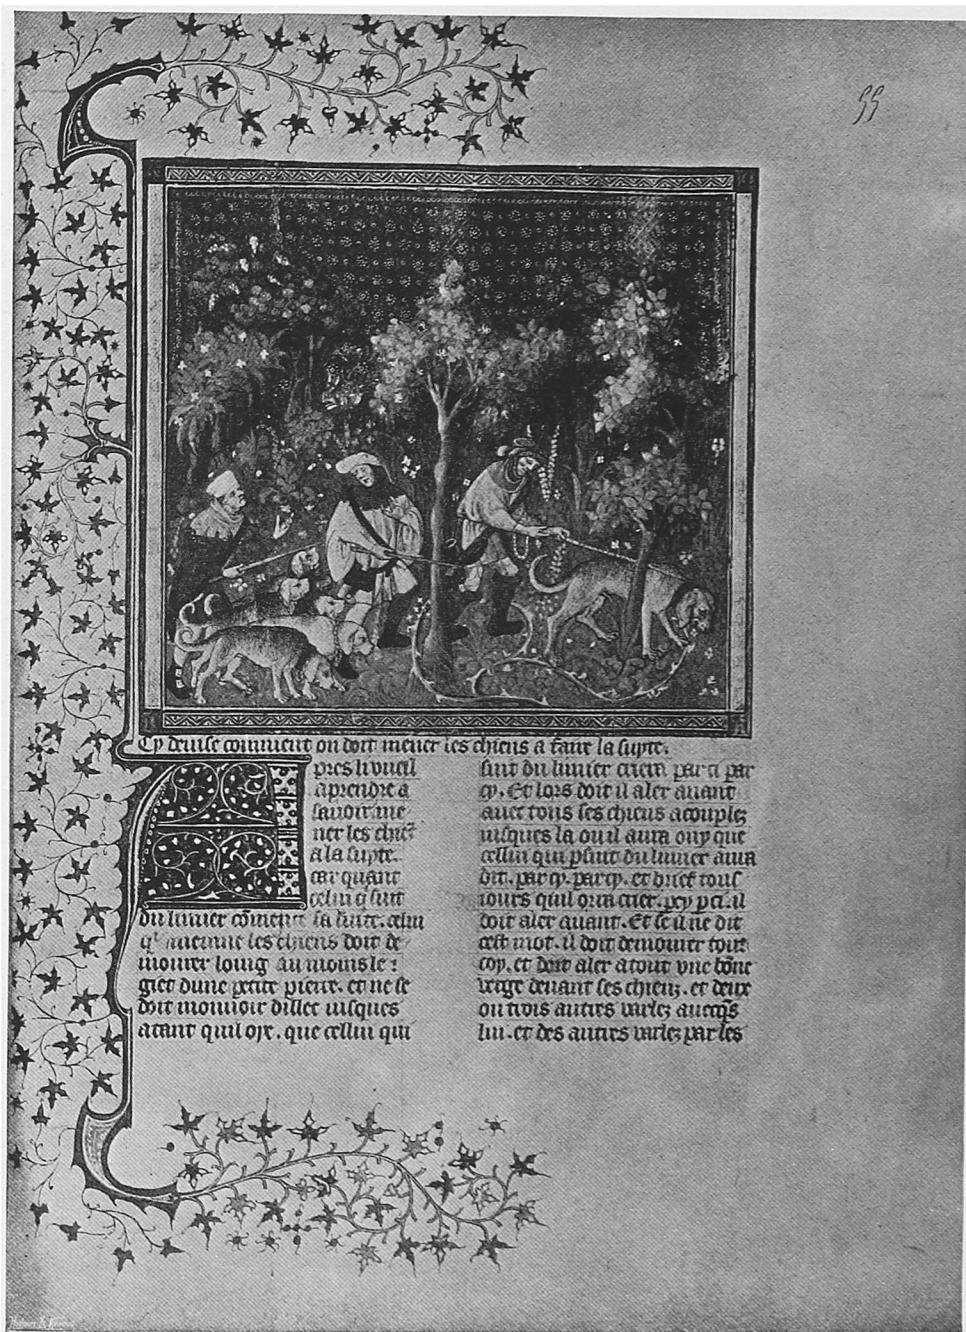 55
Cy deuise comment on doit mener les chiens a faire la suyte.
pres li vueil
aprendre a
sauoir me
ner les chiēs
a la suyte.
car quant
celui q̄ suit
du limier cōmence sa suite. celui
qͥ meinne les chiens doit de
mourer loing au moins le
giet dune petite pierre. et ne se
doit mouuoir dillec iusques
atant quil oye. que cellui qui
suit du limier criera par ci par
cy. Et lors doit il aler auant
auec tous ses chiens acouplez
iusques la ou il aura ouy que
cellui qui p̄suit du limier aura
dit. par cy. par cy. et brief tous
iours quil orra crier. p̄cy p̄ci. il
doit aler auant. Et se il ne dit
cest mot. il doit demourer tout
coy. et doit aler a tout vne bōne
verge deuant ses chiens. et deux
ou trois autres varlez auecq̄s
lui. et des autres varlez par les